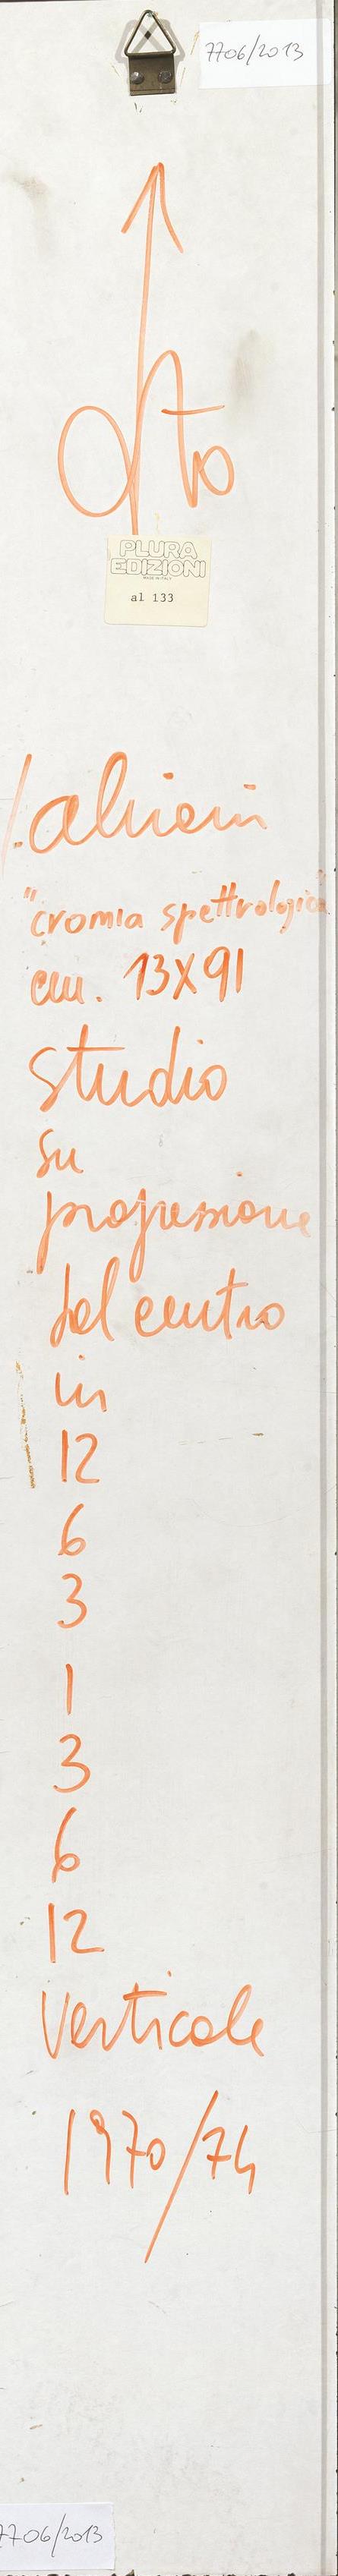 7706/2013
alto
PLURA
EDIZIONI
MADE IN ITALY
al 133
. alviani
"cromia spettrologica"
cm. 13X91
studio
su
progressione
del centro
in
12
6
3
1
3
6
12
Verticale
1970/74
7706/2013